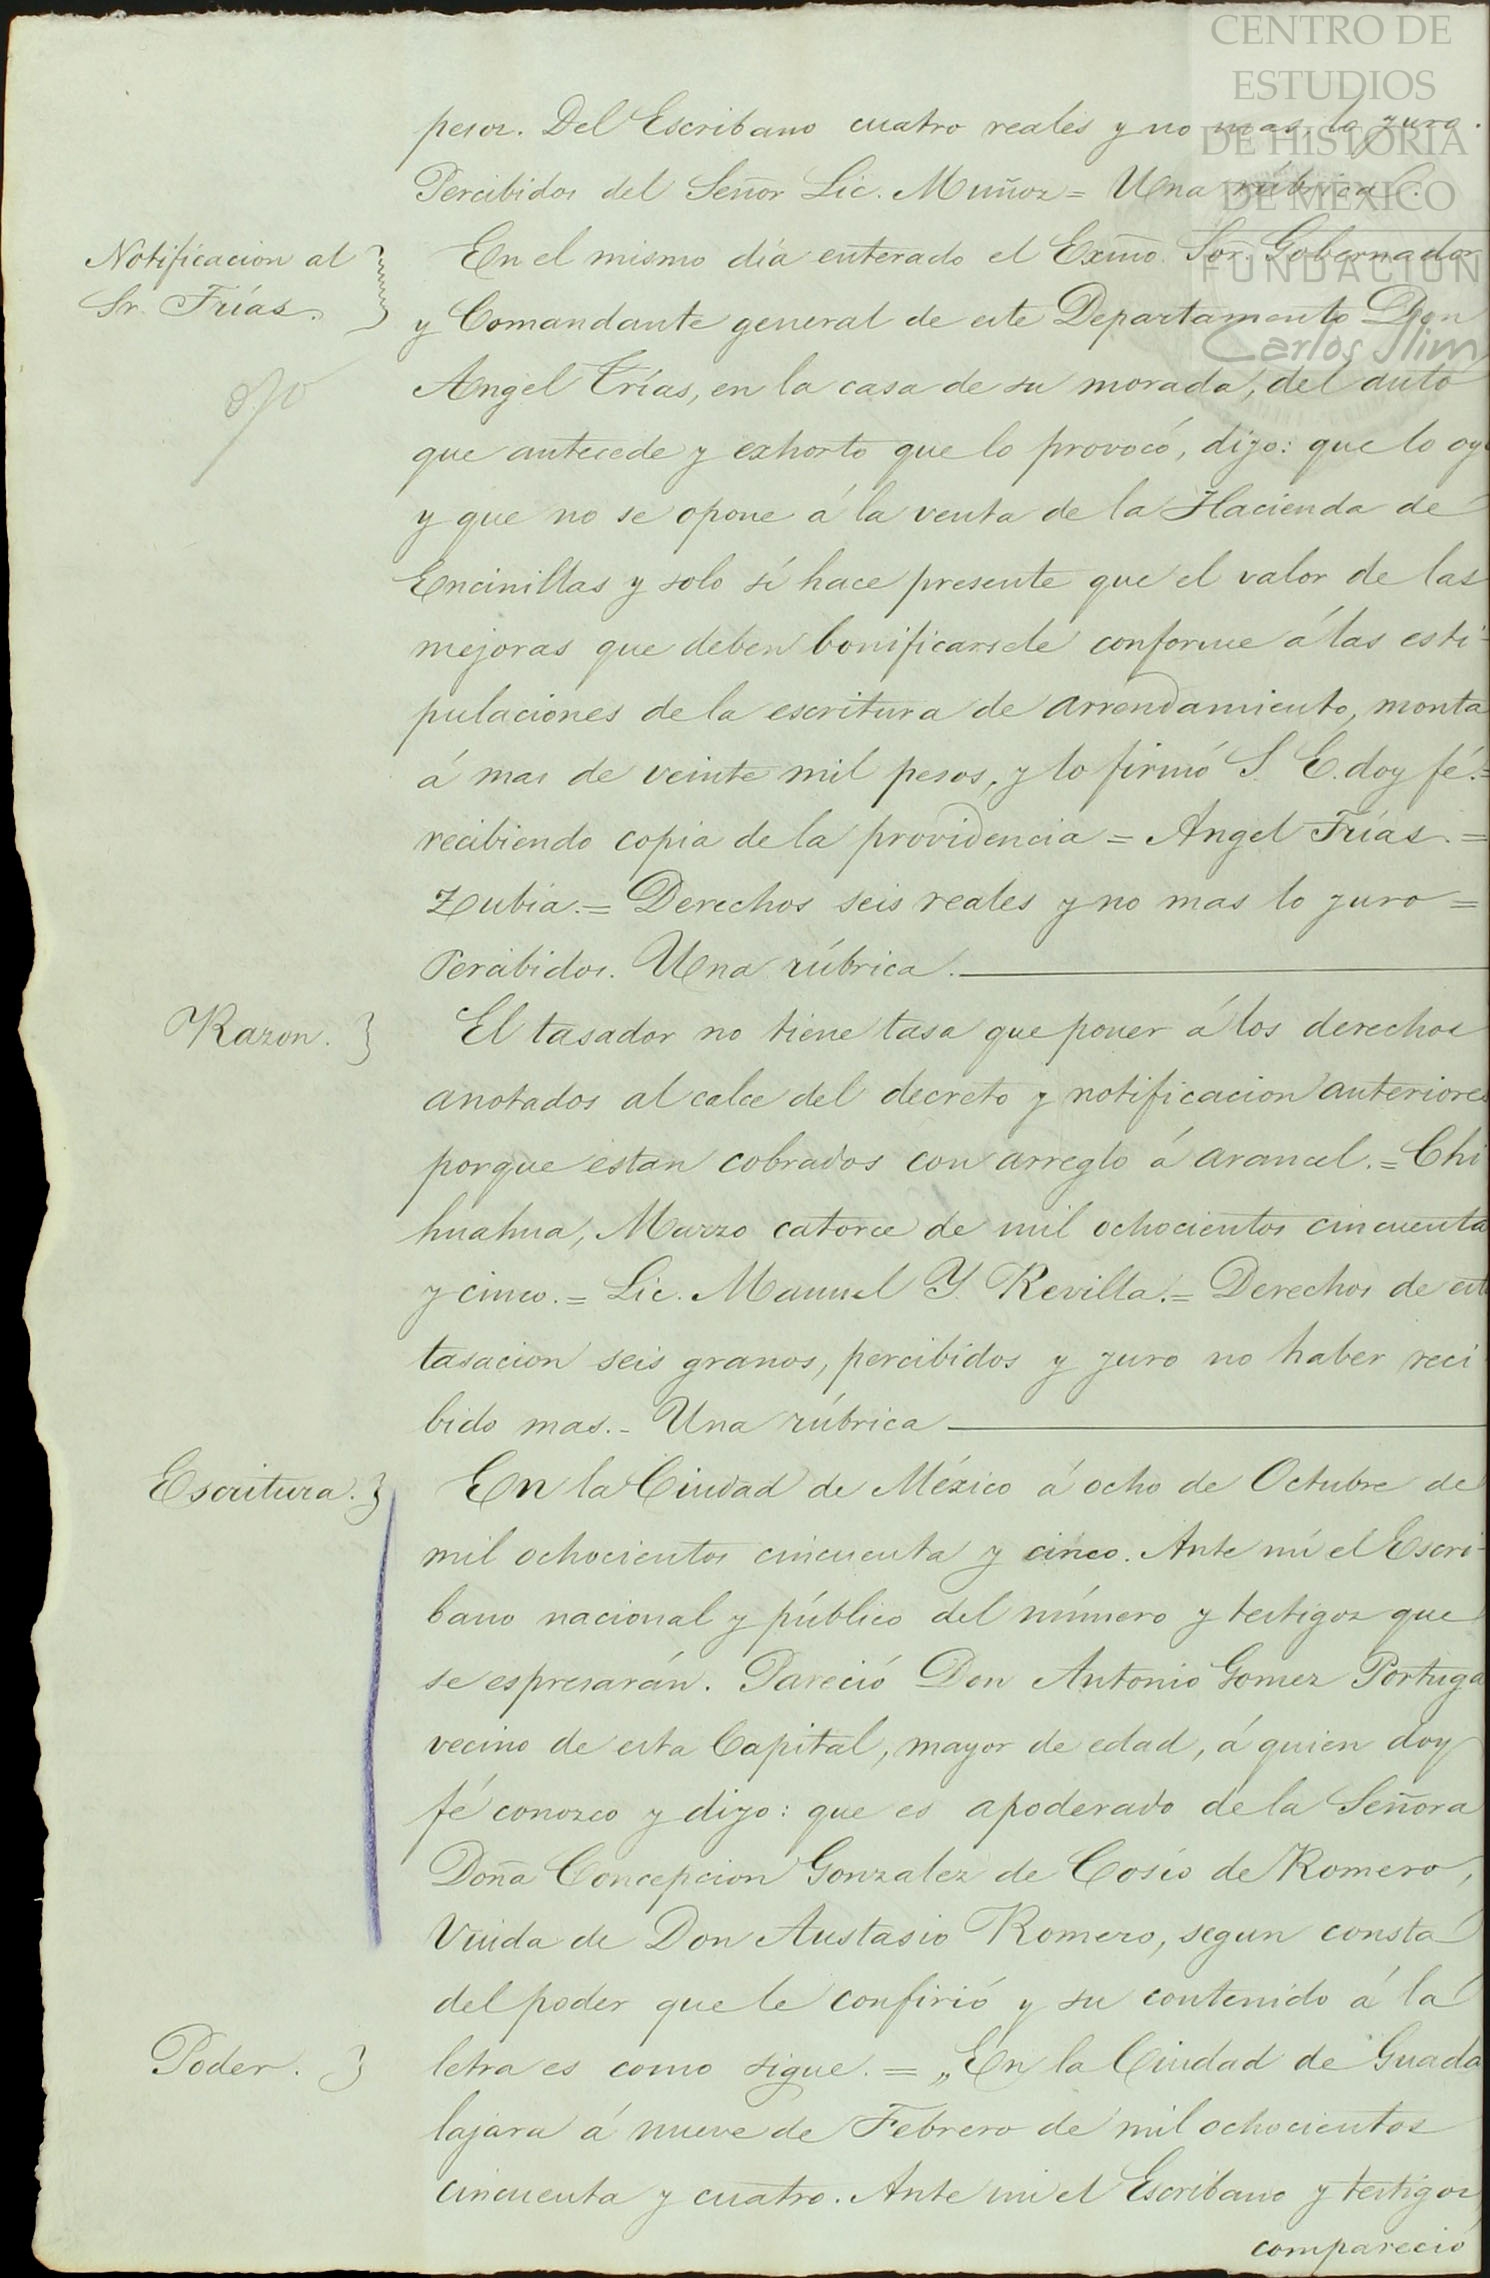 CENTRO DE
ESTUDIOS
DE HISTORIA
DE MÉXICO
FUNDACIÓN
Carlos Slim
pesos. Del Escribano cuatro reales y no mas, lo juro.
Percibidos del Señor Lic. Muñoz = Una rúbrica.
Notificacion al
Sr. Frías.
En el mismo día enterado el Exmo. Sor. Gobernador
y Comandante general de este Departamento Don
Angel Trías, en la casa de su morada, del auto
que antecede y exhorto que lo provocó, dijo: que lo oye
y que no se opone á la venta de la Hacienda de
Encinillas y solo sí hace presente que el valor de las
mejoras que deben bonificarsele conforme á las esti-
pulaciones de la escritura de arrendamiento, monta
á mas de veinte mil pesos, y lo firmó S. E. doy fé.=
recibiendo copia de la providencia = Angel Frías. =
Zubia. = Derechos seis reales y no mas lo juro =
Percibidos. Una rúbrica.
Razon.
El tasador no tiene tasa que poner á los derechos
anotados al calce del decreto y notificacion anteriores
porque estan cobrados con arreglo á arancel. = Chi
huahua, Marzo catorce de mil ochocientos cincuenta
y cinco. = Lic. Manuel Y. Revilla. = Derechos de esta
tasacion seis granos, percibidos y juro no haber reci
bido mas. - Una rúbrica
Escritura.
En la Ciudad de México á ocho de Octubre de
mil ochocientos cincuenta y cinco. Ante mí el Escri-
bano nacional y público del número y testigos que
se espresarán. Pareció Don Antonio Gomez Portuga
vecino de esta Capital, mayor de edad, á quien doy
fé conozco y dijo: que es apoderado de la Señora
Doña Concepcion Gonzalez de Cosío de Romero,
Viuda de Don Austasio Romero, segun consta
del poder que le confirió y su contenido á la
Poder.
letra es como sigue. = „En la Ciudad de Guada
lajara á nueve de Febrero de mil ochocientos
cincuenta y cuatro. Ante mi el Escribano y testigos
compareció